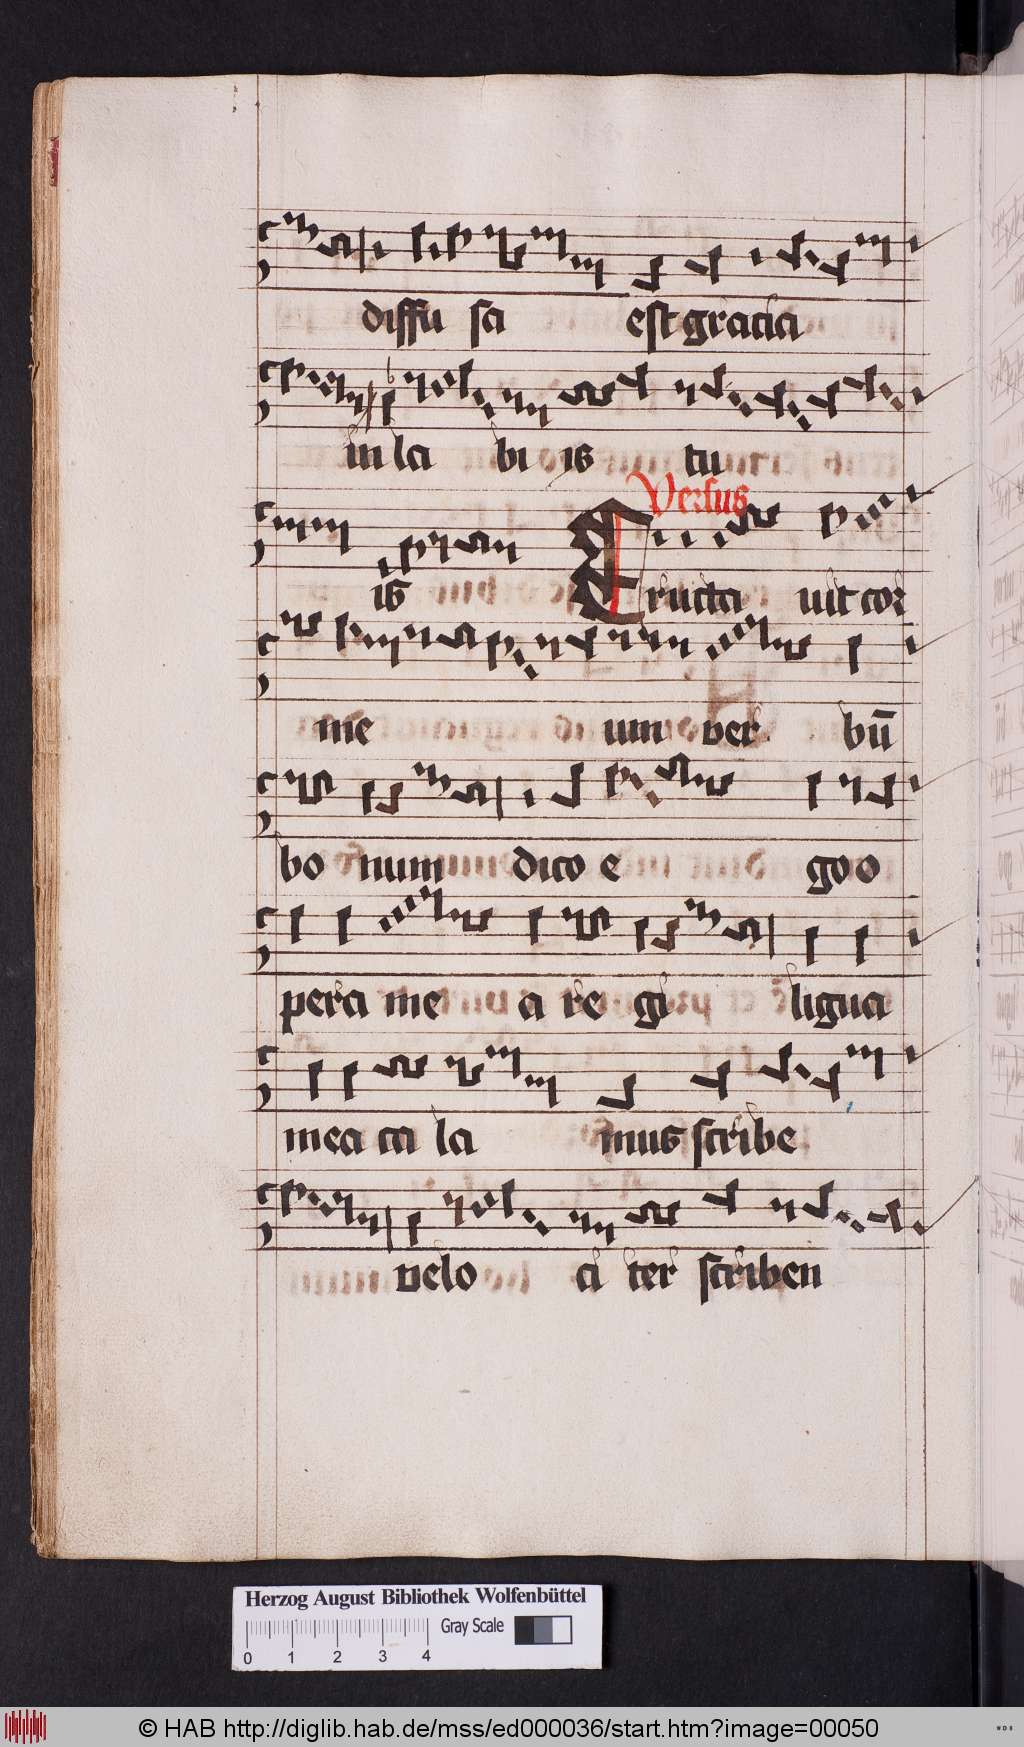 diffu sa est gracia
in la bi is tu
Versus
is Eructa uit cor
me um ver bū
bo num dico e go o
pera me a re gi ligua
mea ca la mus scribe
velo ci ter scriben
Herzog August Bibliothek Wolfenbüttel
Gray Scale
0 1 2 3 4
© HAB http://diglib.hab.de/mss/ed000036/start.htm?image=00050